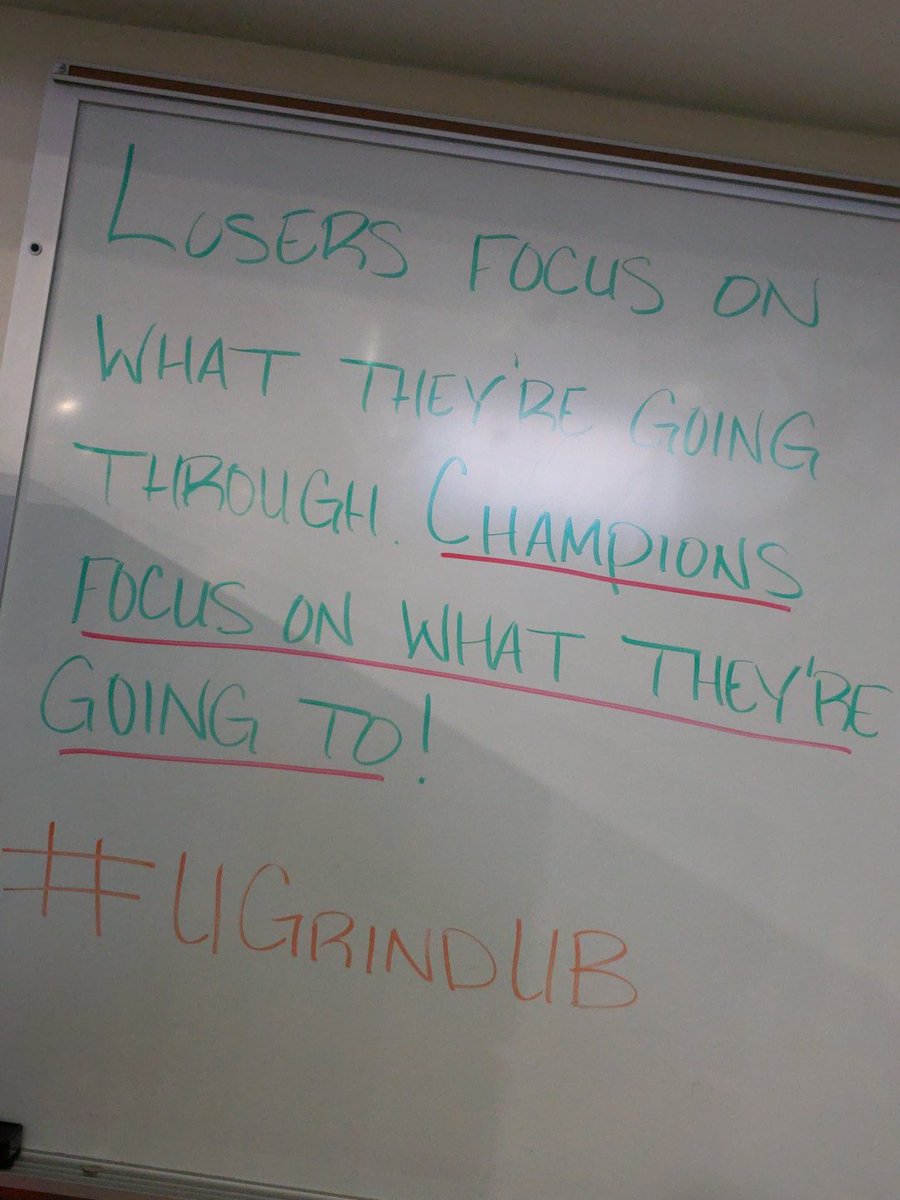 LOSERS FOCUS ON
WHAT THEY'RE GOING
THROUGH. CHAMPIONS
FOCUS ON WHAT THEY'RE
GOING TO!
#UGRINDUB